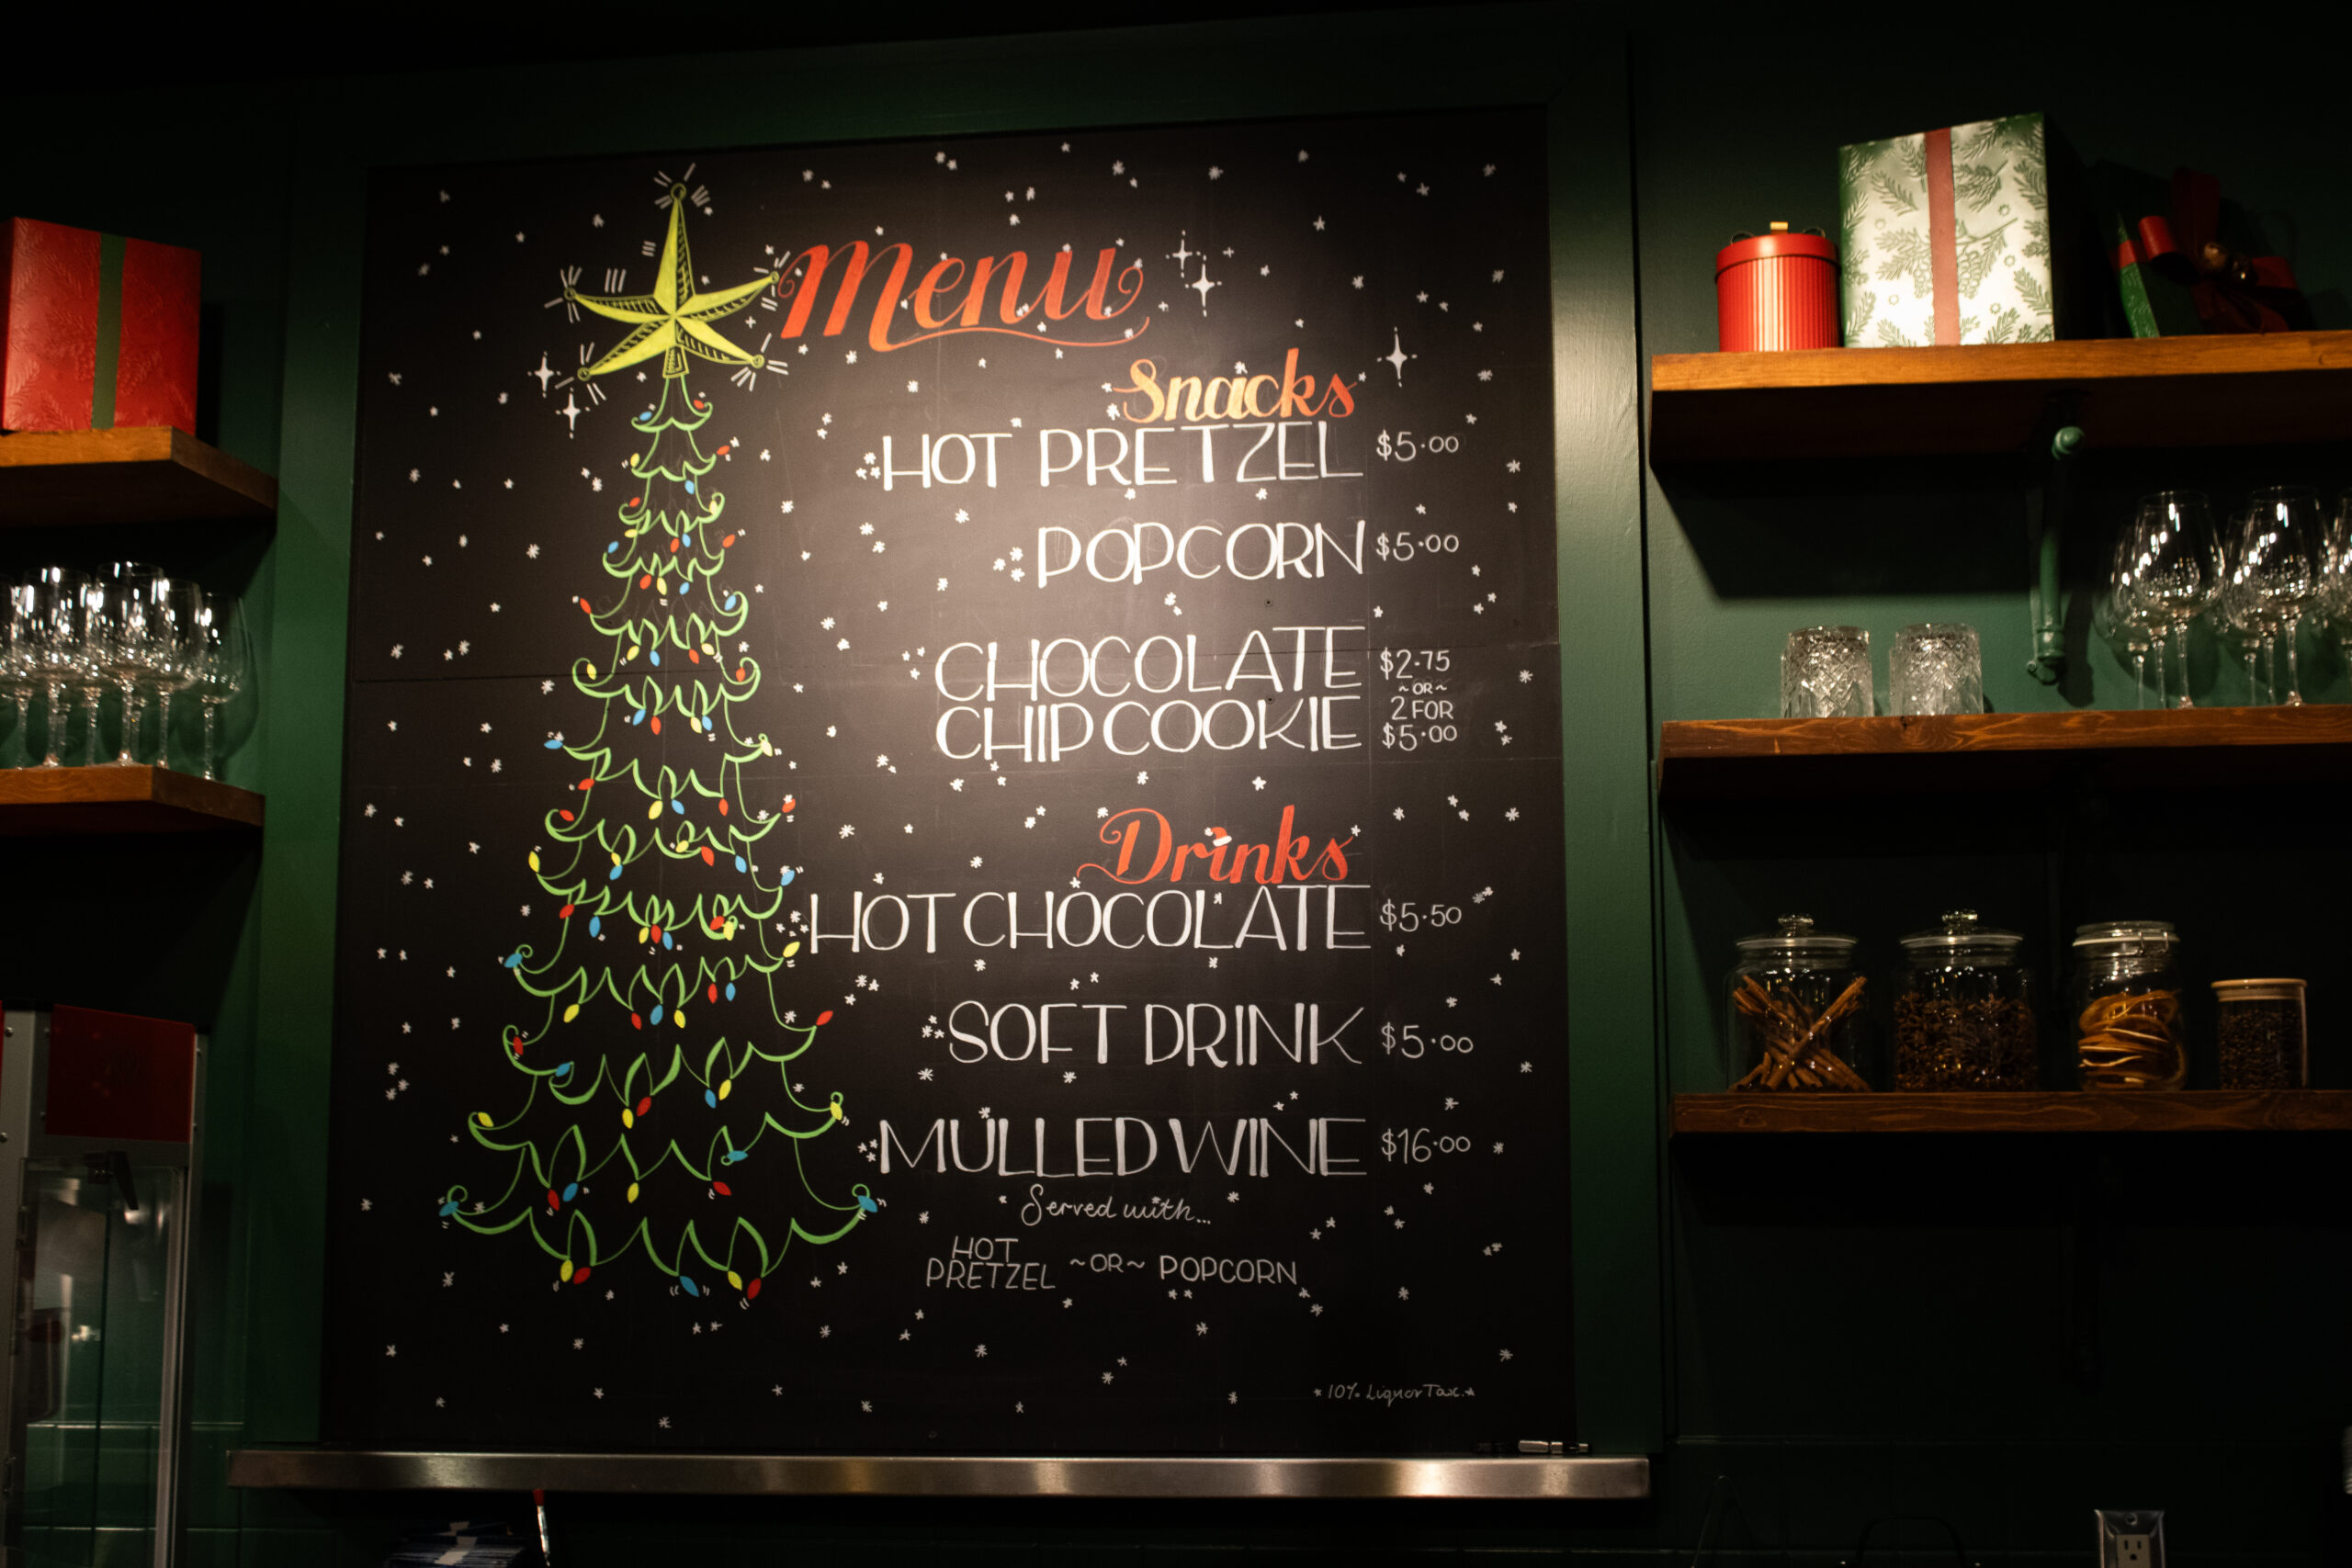 Menu
Snacks
HOT PRETZEL $5.00
POPCORN $5.00
CHOCOLATE $2.75
~OR~
CHIP COOKIE 2 FOR
$5.00
Drinks
HOT CHOCOLATE $5.50
SOFT DRINK $5.00
MULLED WINE $16.00
Served with...
HOT
PRETZEL ~OR~ POPCORN
*10% Liquor Tax.*